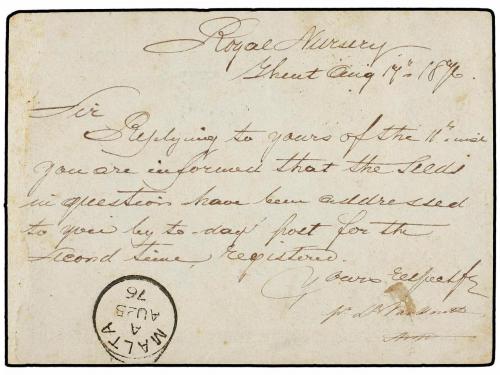 Royal Nursery
Ghent Aug 17th 1876.
Sir
Replying to yours of the 11th inst
you are informed that the Seeds
in question have been addressed
to you by to-day' post for the
second time, registered.
Yours respectfy
pr
MALTA
A
AU 23
76